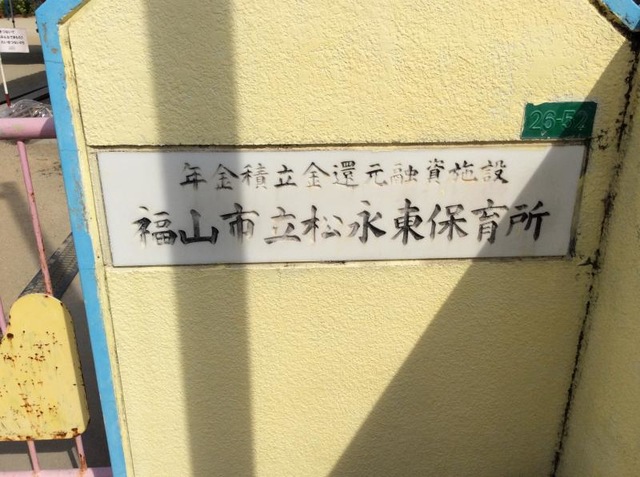 26-52
年金積立金還元融資施設
福山市立松永東保育所